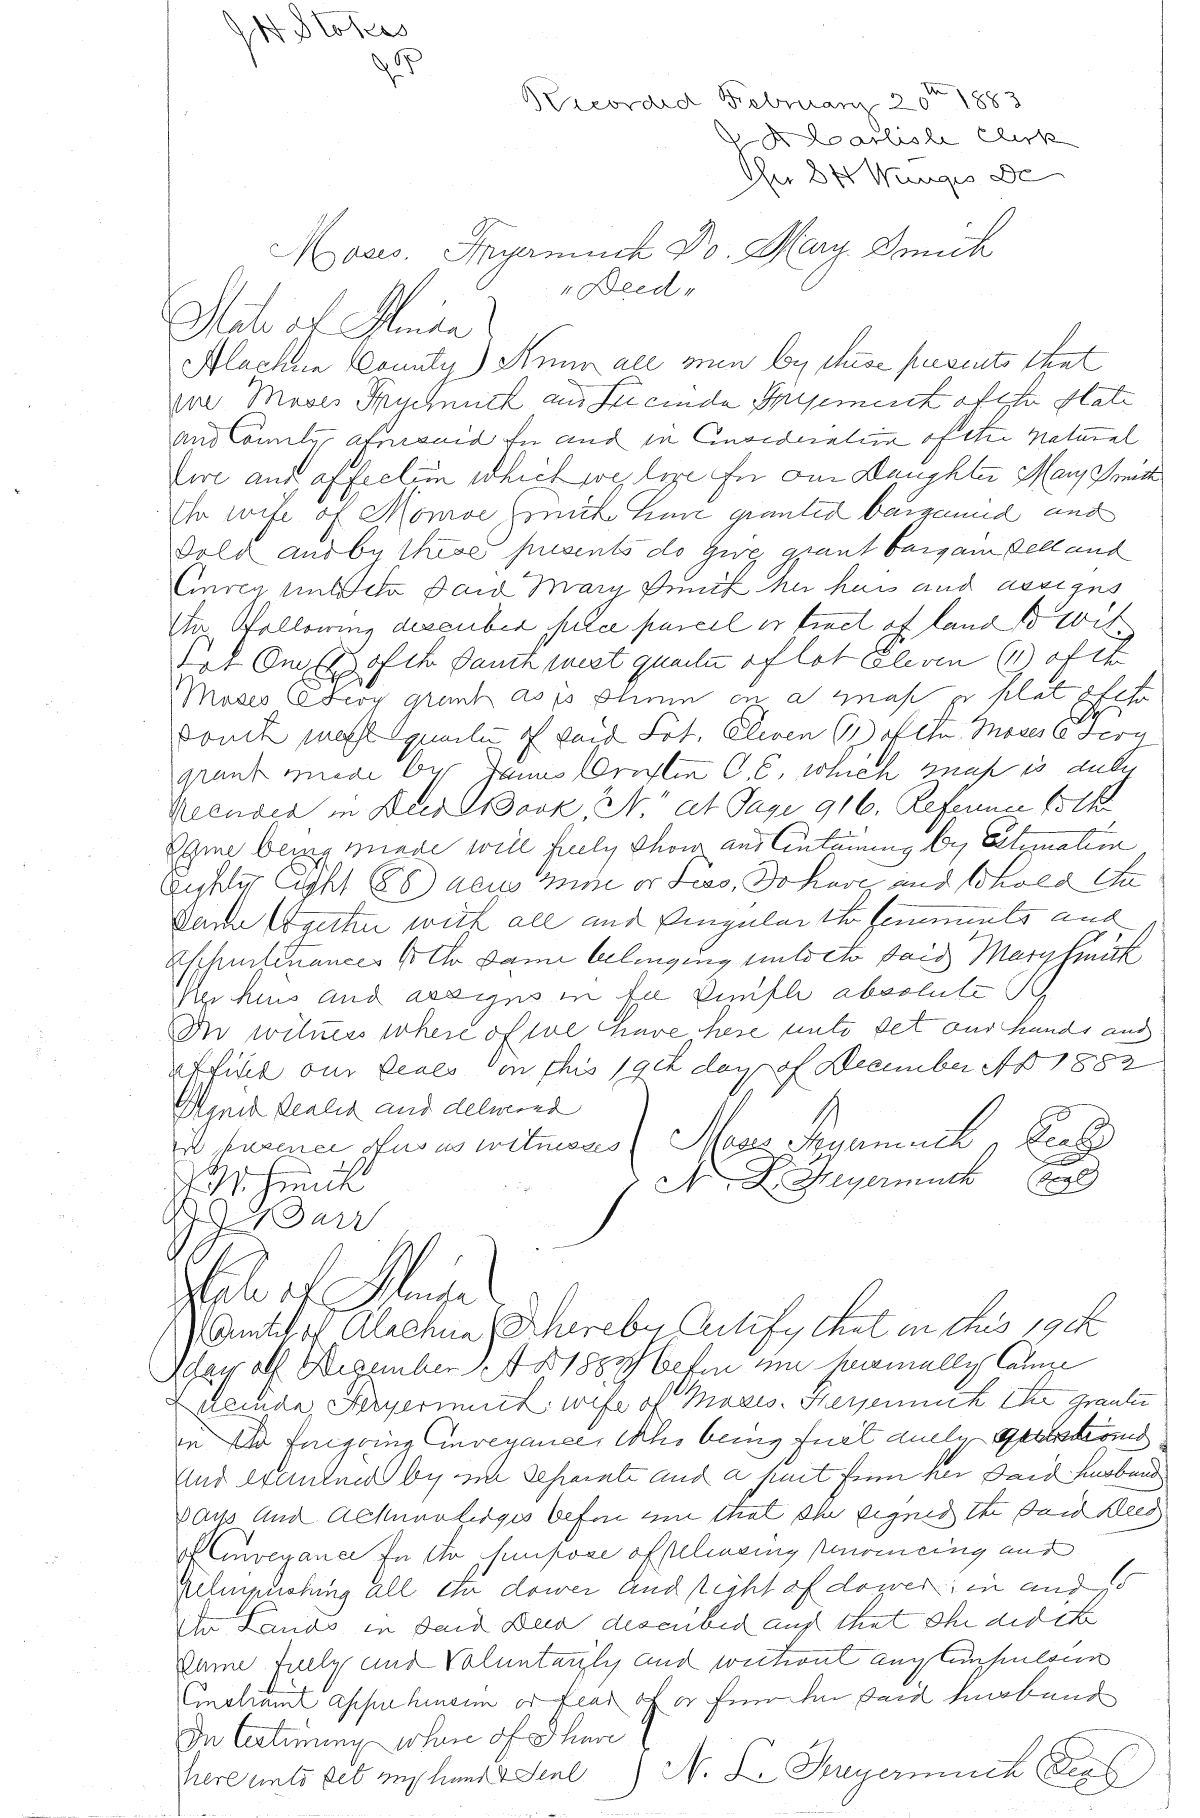 J H Stokes
J P
Recorded February 20th 1883
J A Carlisle Clerk
Per S H Wienges DC
Moses. Fryermuth To. Mary. Smith
"Deed"
State of Florida
Alachua County) Know all men by these presents that
we Moses Fryermuth and Lucinda Fryermuth of the State
and County aforesaid for and in Consideration of the natural
love and affection which we love for our Daughter Mary Smith
the wife of Monroe Smith have granted bargained and
Sold and by these presents do give grant bargain Sell and
Convey unto the Said Mary Smith her heirs and assigns
the following described piece parcel or tract of land to wit.
Lot One (1) of the South west quarter of lot Eleven (11) of the
Moses E Levy grant as is shown on a map or plat of the
South west quarter of said Lot. Eleven (11) of the Moses E Levy
grant made by James Croxton C.E. which map is duly
recorded in Deed Book, "N." at Page 916. Reference to the
Same being made will freely Show and Containing by Estimation
Eighty Eight (88) acres more or Less. To have and to hold the
Same together with all and Singular the tenements and
appurtenances to the same belonging unto the said Mary Smith
Her heirs and assigns in fee Simple absolute
In witness where of we have here unto set our hands and
affixed our Seals on this 19th day of December A D 1882
Signed Sealed and delivered
in presence of us as witnesses ) Moses Freyermuth, Seal
J. W. Smith ) N. L. Freyermuth Seal
J J Barr
State of Florida
County of Alachua ) I hereby Certify that on this 19th
day of December A D 1882 before me personally Came
Lucinda Freyermuth. wife of Moses. Freyermuth the grantor
in the foregoing Conveyances who being first duely questioned
and examined by me Separate and a part from her Said husband
Says and acknowledges before me that she signed the Said Deed
of Conveyance for the purpose of releasing renouncing and
relinquishing all the dower and right of dower; in and to
the Lands in Said Deed described and that She did the
Same freely and Voluntarily and without any Compulsion
Constraint apprehension or fear of or from her said husband
In testimony where of I have
here unto set my hand & Seal ) N. L. Freyermuth Seal